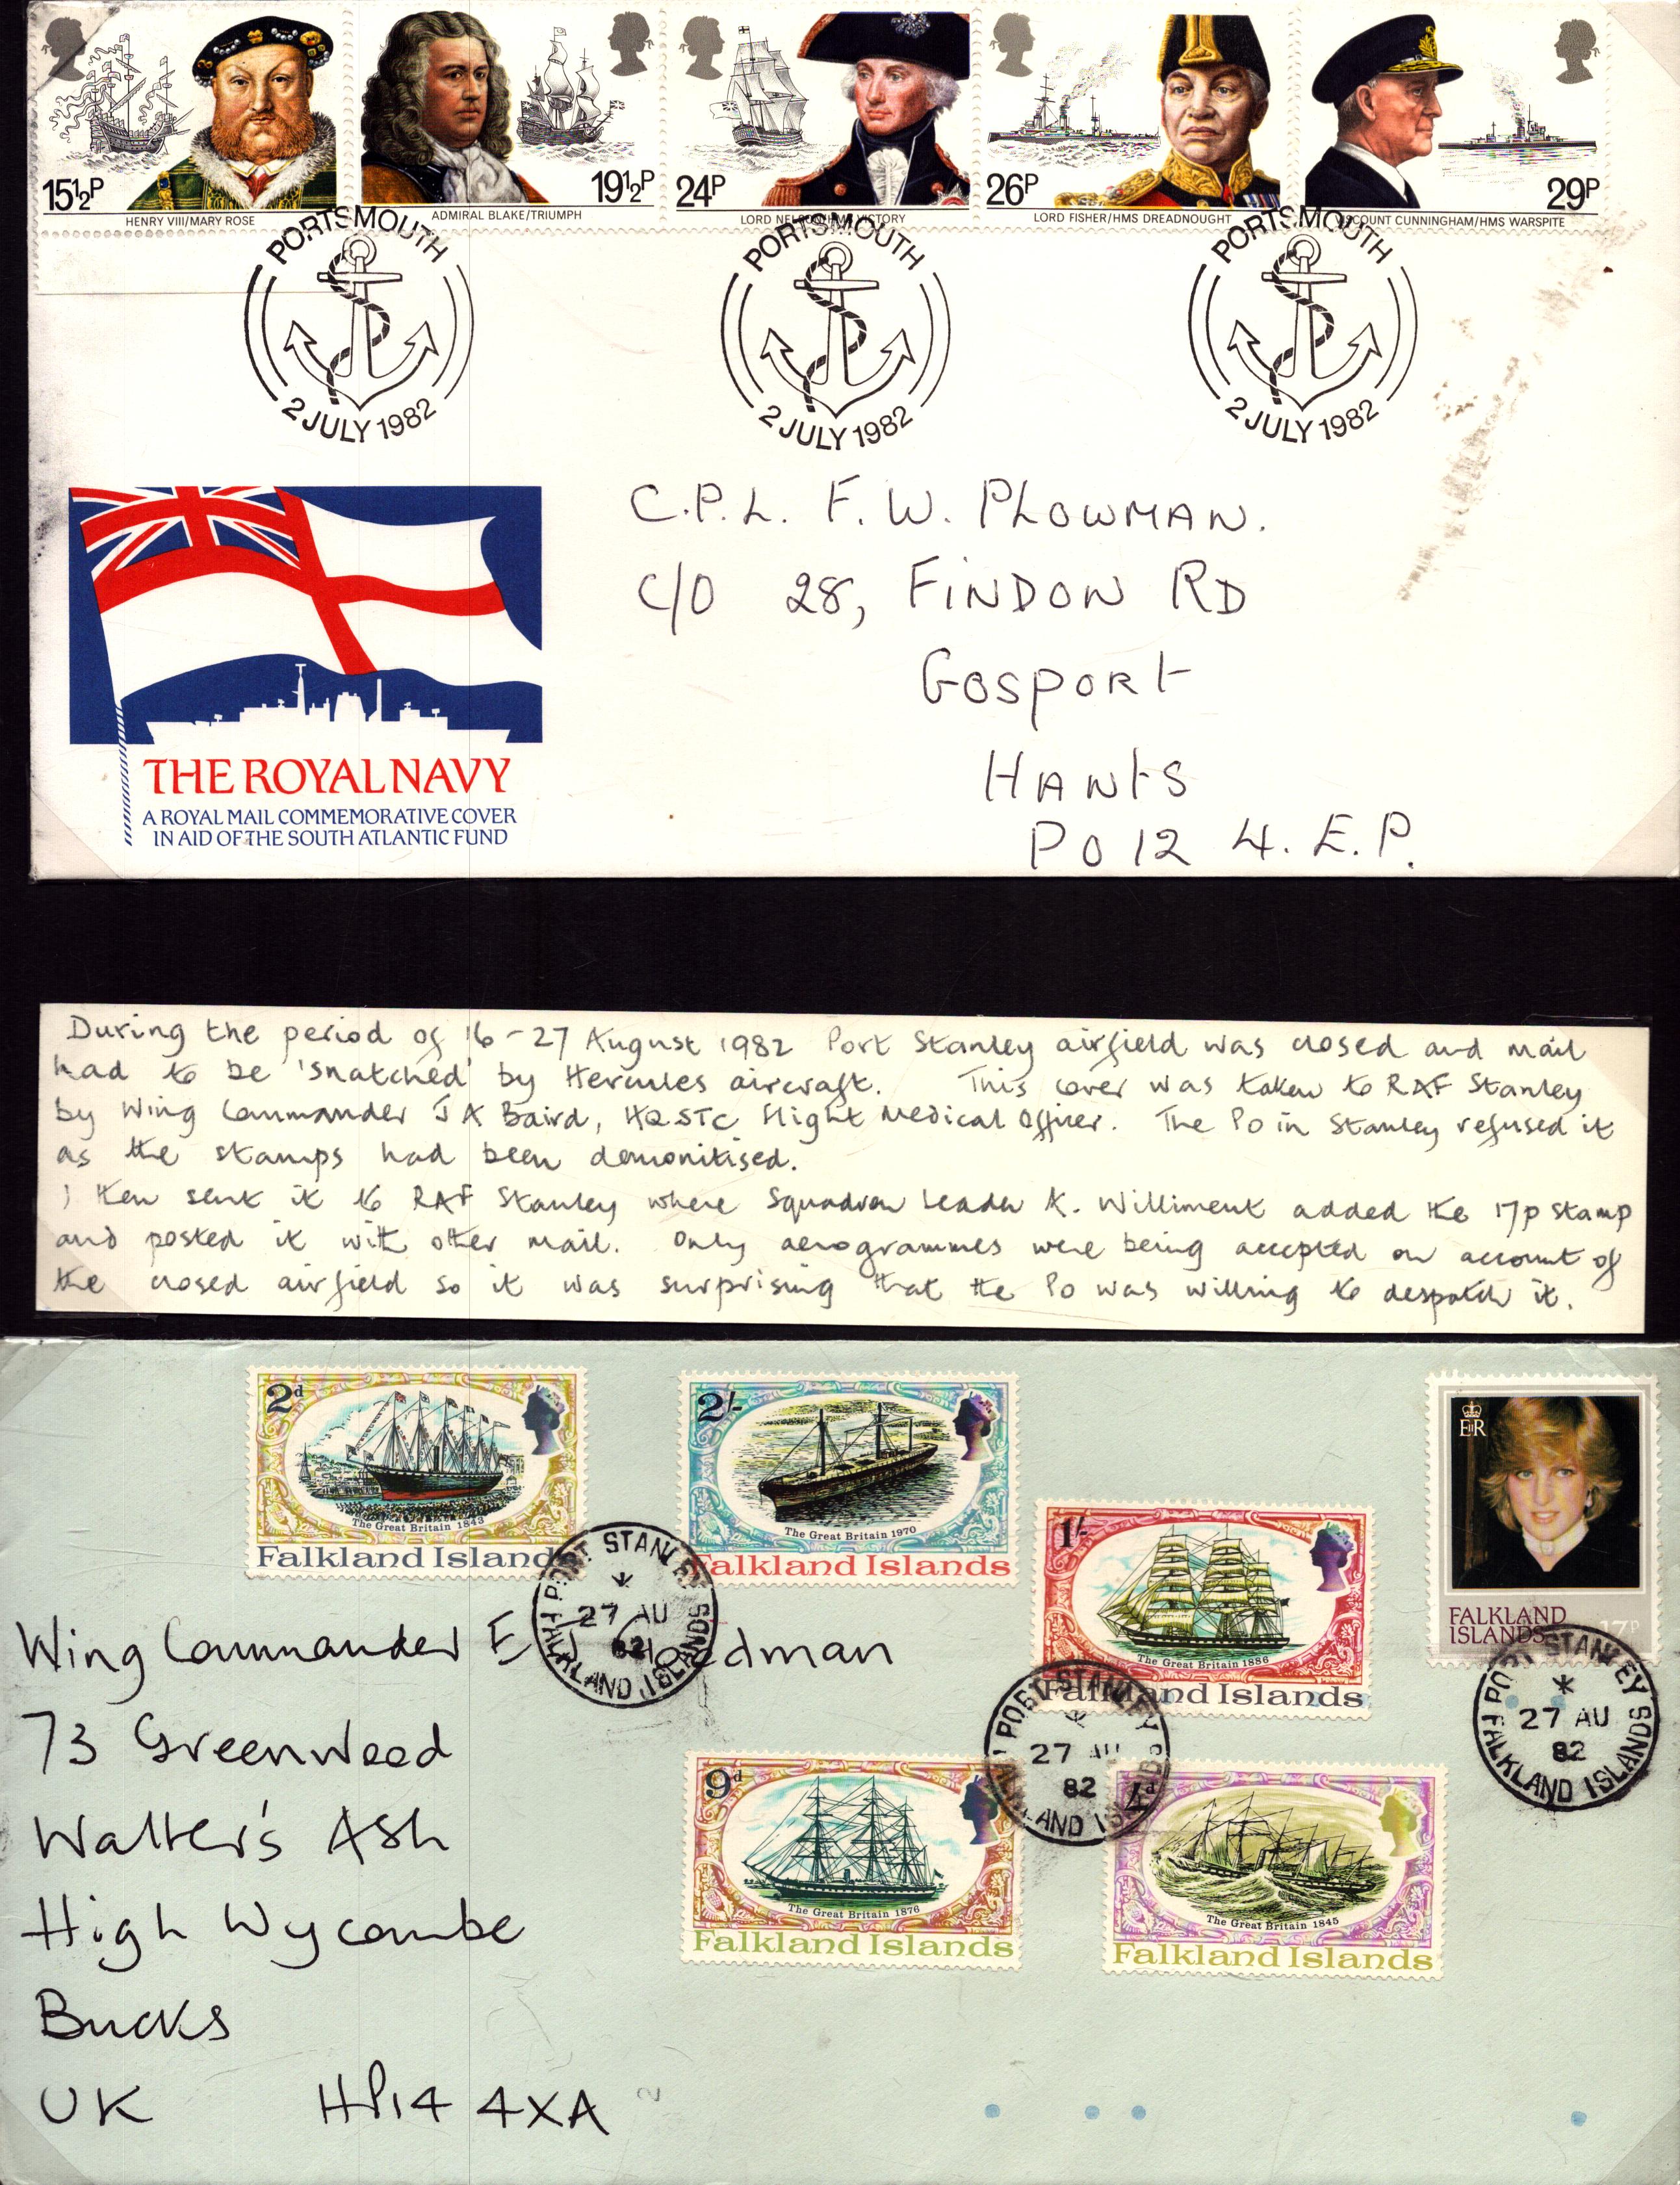 15½P
HENRY VIII/MARY ROSE
19½P
ADMIRAL BLAKE/TRIUMPH
24P
LORD NELSON/HMS VICTORY
26P
LORD FISHER/HMS DREADNOUGHT
29P
VISCOUNT CUNNINGHAM/HMS WARSPITE
PORTSMOUTH
2 JULY 1982
PORTSMOUTH
2 JULY 1982
PORTSMOUTH
2 JULY 1982
C.P.L. F.W. PLOWMAN.
C/O 28, FINDON RD
GOSPORT
HANTS
PO12 4.E.P.
THE ROYAL NAVY
A ROYAL MAIL COMMEMORATIVE COVER
IN AID OF THE SOUTH ATLANTIC FUND
During the period of 16-27 August 1982 Port Stanley airfield was closed and mail
had to be 'snatched' by Hercules aircraft. This cover was taken to RAF Stanley
by Wing Commander J A Baird, HQSTC Flight Medical Officer. The PO in Stanley refused it
as the stamps had been demonitised.
I then sent it to RAF Stanley where Squadron Leader K. Williment added the 17p stamp
and posted it with other mail. Only aerogrammes were being accepted on account of
the closed airfield so it was surprising that the PO was willing to despatch it.
2d
The Great Britain 1843
Falkland Islands
2/-
The Great Britain 1970
Falkland Islands
1/-
The Great Britain 1886
Falkland Islands
EIIR
FALKLAND
ISLANDS 17P
PORT STANLEY
27 AU
82
FALKLAND ISLANDS
PORT STANLEY
27 AU
82
FALKLAND ISLANDS
PORT STANLEY
27 AU
82
FALKLAND ISLANDS
9d
The Great Britain 1876
Falkland Islands
4d
The Great Britain 1845
Falkland Islands
Wing Commander E
dman
73 Greenwood
Walter's Ash
High Wycombe
Bucks
UK HP14 4XA
2